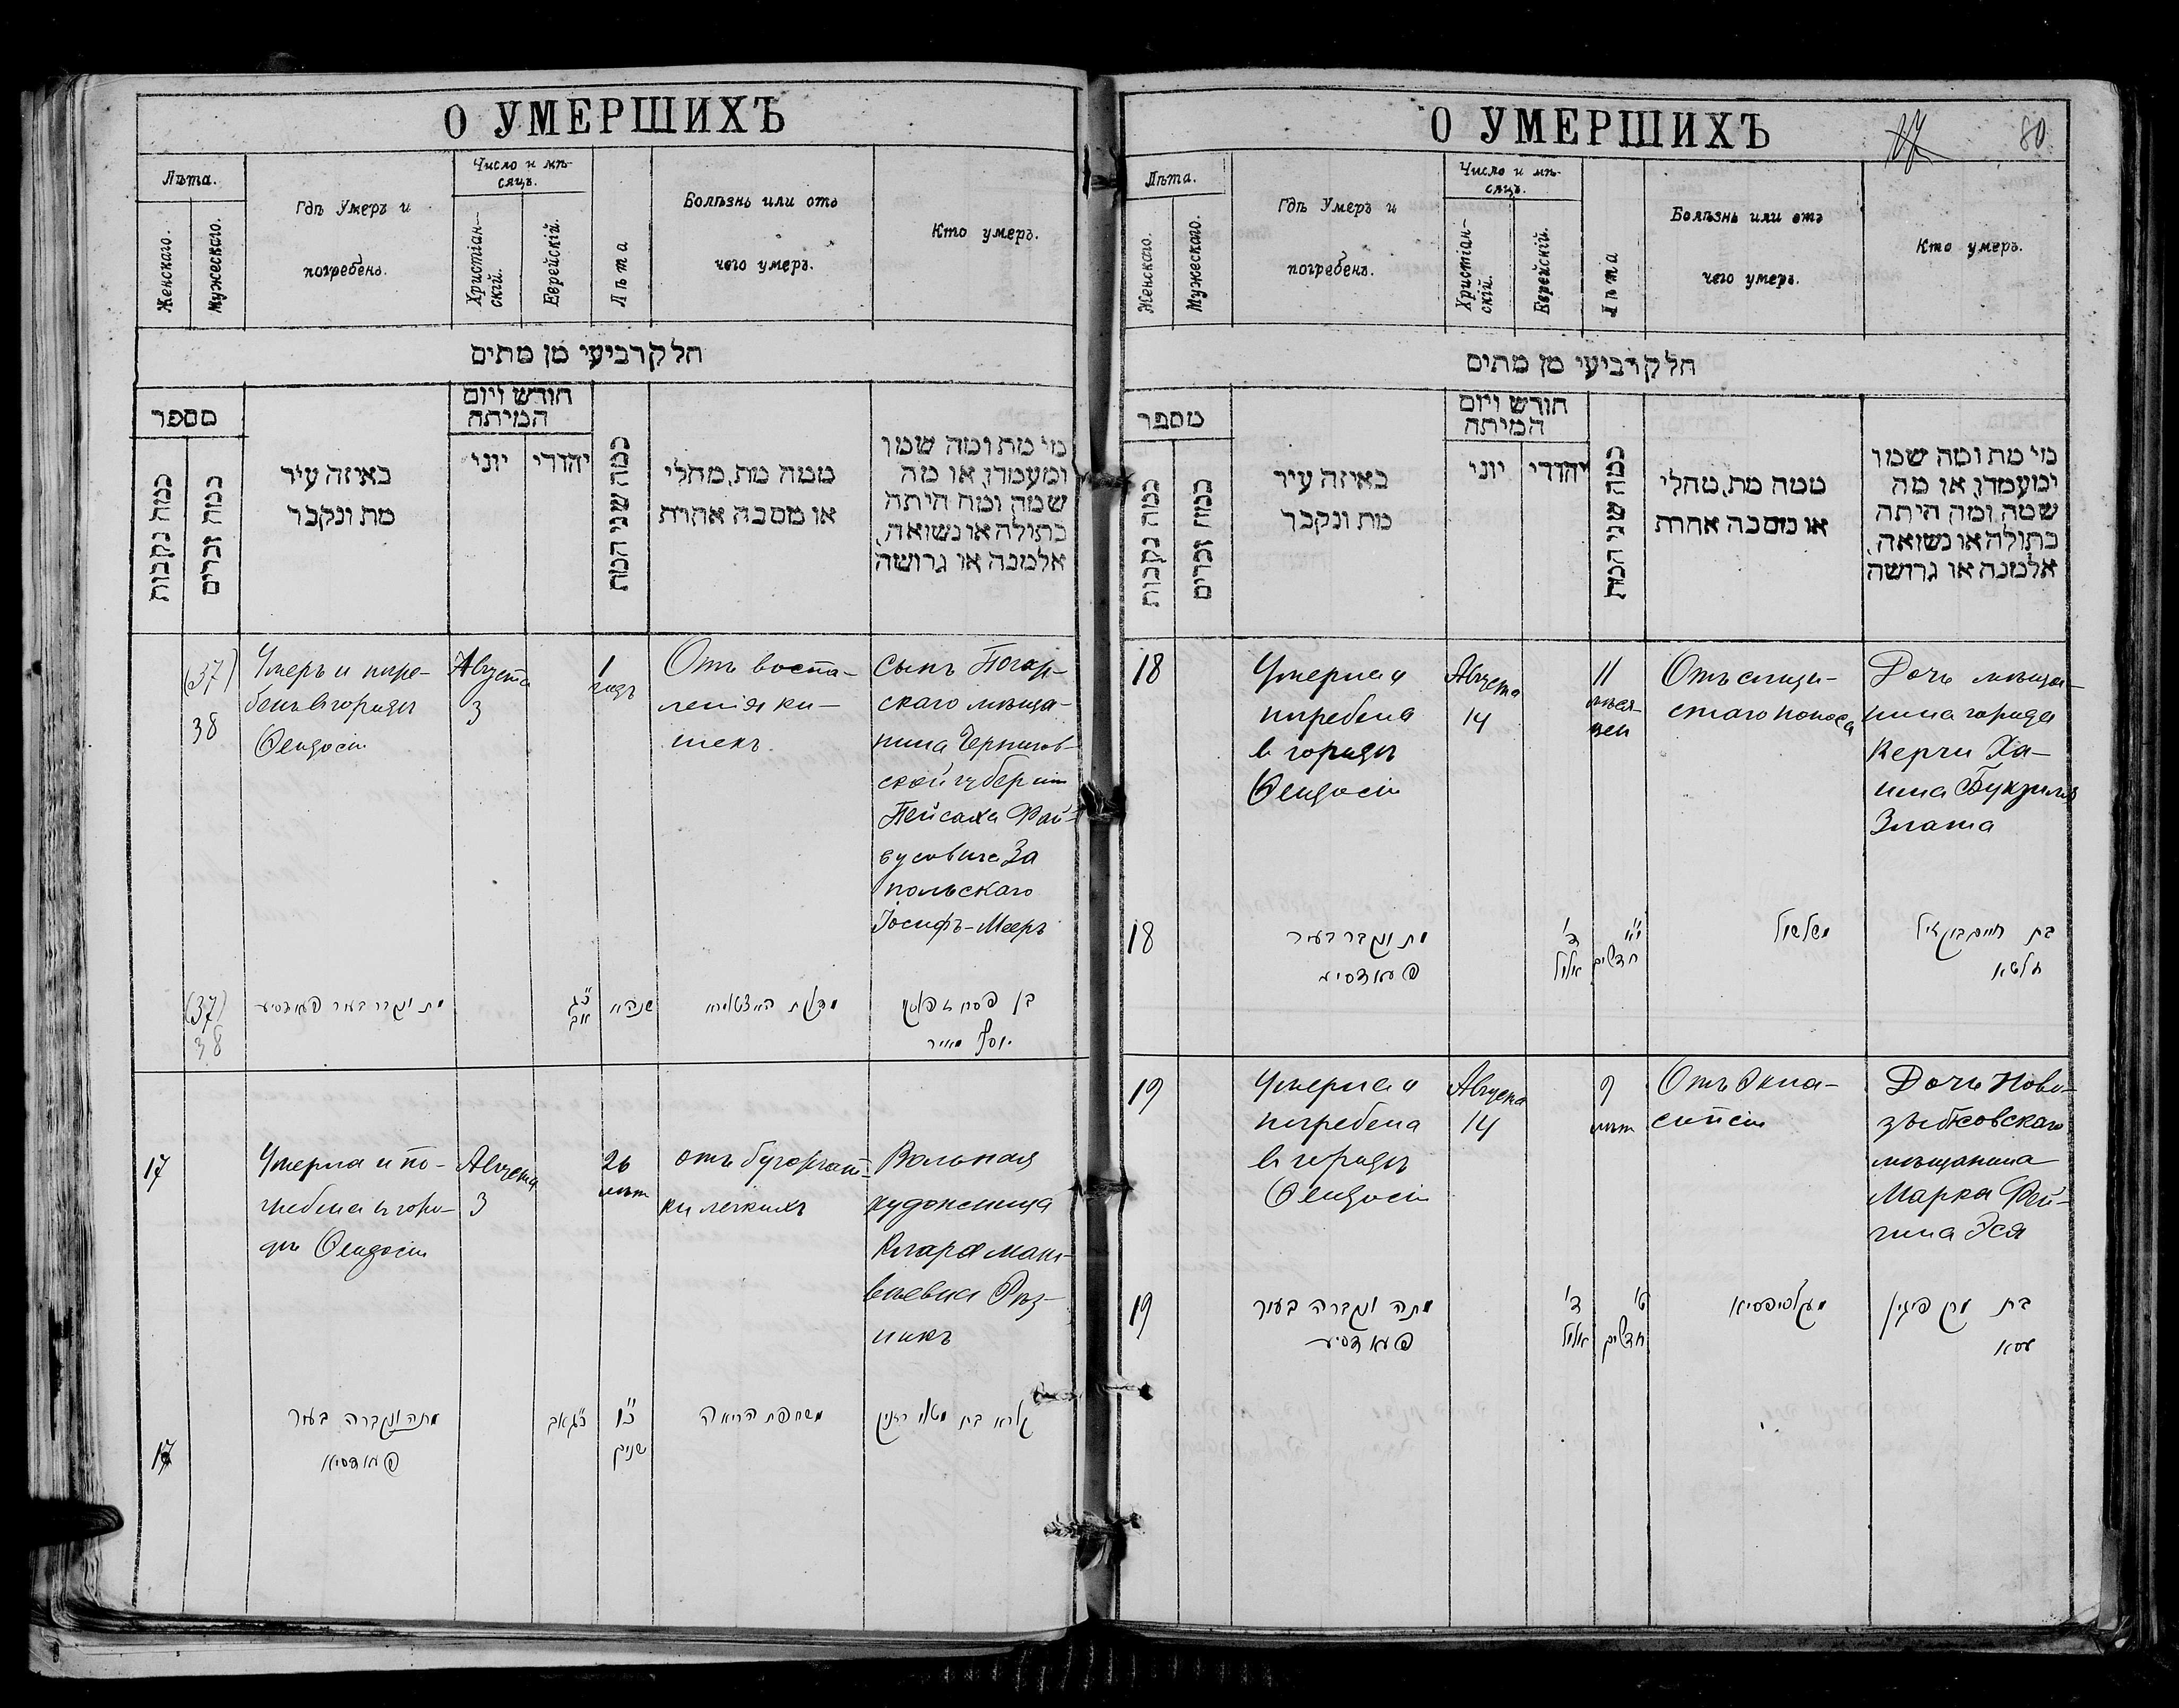 О УМЕРШИХЪ
Лѣта.
Женскаго.
Мужескаго.
Гдѣ Умеръ и
погребенъ.
Число и мѣ-
сяцъ.
Христіан-
скій.
Еврейскій.
Лѣта
Болѣзнь или отъ
чего умеръ.
Кто умеръ.
חלק רביעי מן מתים
מספר
כמה נקבות
כמה זכרים
באיזה עיר
מת ונקבר
חודש ויום
המיתה
יוני
יהודי
כמה שני המת
ממה מת, מחלי
או מסבה אחרת
מי מת ומה שמו
ומעמדו, או מה
שמה ומה היתה
בתולה או נשואה,
אלמנה או גרושה
(37)
38
Умеръ и погре-
бенъ въ городѣ
Ѳеодосіи
Августа
3
1
годъ
Отъ воспа-
ленія ки-
шекъ
Сынъ Погар-
скаго мѣща-
нина Чернигов-
ской губерніи
Пейсаха Фай-
вусовича За
польскаго
Іосифъ-Мееръ
(37)
38
מת ונקבר בעיר פעאדסיע
כ"ג
אב
שנה א
בן פסח זאפאלסקי
יוסף מאיר
17
Умерла и по-
гребена въ горо-
дѣ Ѳеодосіи
Августа
3
26
лѣтъ
отъ бугорчат-
ки легкихъ
Вольная
художница
Клара Мат-
вѣевна Рѣз-
никъ
17
מתה ונקברה בעיר
פעאדסיא
כ"ג אב
כ"ו
שנים
משחפת הריאה
קלארא בת מטוי רזניק
О УМЕРШИХЪ
80
Лѣта.
Женскаго.
Мужескаго.
Гдѣ Умеръ и
погребенъ.
Число и мѣ-
сяцъ.
Христіан-
скій.
Еврейскій.
Лѣта
Болѣзнь или отъ
чего умеръ.
Кто умеръ.
חלק רביעי מן מתים
מספר
כמה נקבות
כמה זכרים
באיזה עיר
מת ונקבר
חודש ויום
המיתה
יוני
יהודי
כמה שני המת
ממה מת, מחלי
או מסבה אחרת
מי מת ומה שמו
ומעמדו, או מה
שמה ומה היתה
בתולה או נשואה,
אלמנה או גרושה
18
Умерла и
погребена
въ городѣ
Ѳеодосіи
Августа
14
11
мѣся-
цен
Отъ слизи-
стаго поноса
Дочь мѣща-
нина города
Керчи Ха-
има
Злата
18
מת ונקבר בעיר
פעאדסיא
ד'
אלול
י"א
חדשים
משלשול
בת חיים
זלטא
19
Умерла и
погребена
въ городѣ
Ѳеодосіи
Августа
14
9
лѣтъ
Отъ Экла-
мпсіи
Дочь Ново-
зыбковскаго
мѣщанина
Марка Фей-
гина Эся
19
מתה ונקברה בעיר
פעאדסיע
ד'
אלול
ט'
חדשים
בת מרק פיגין
עסא